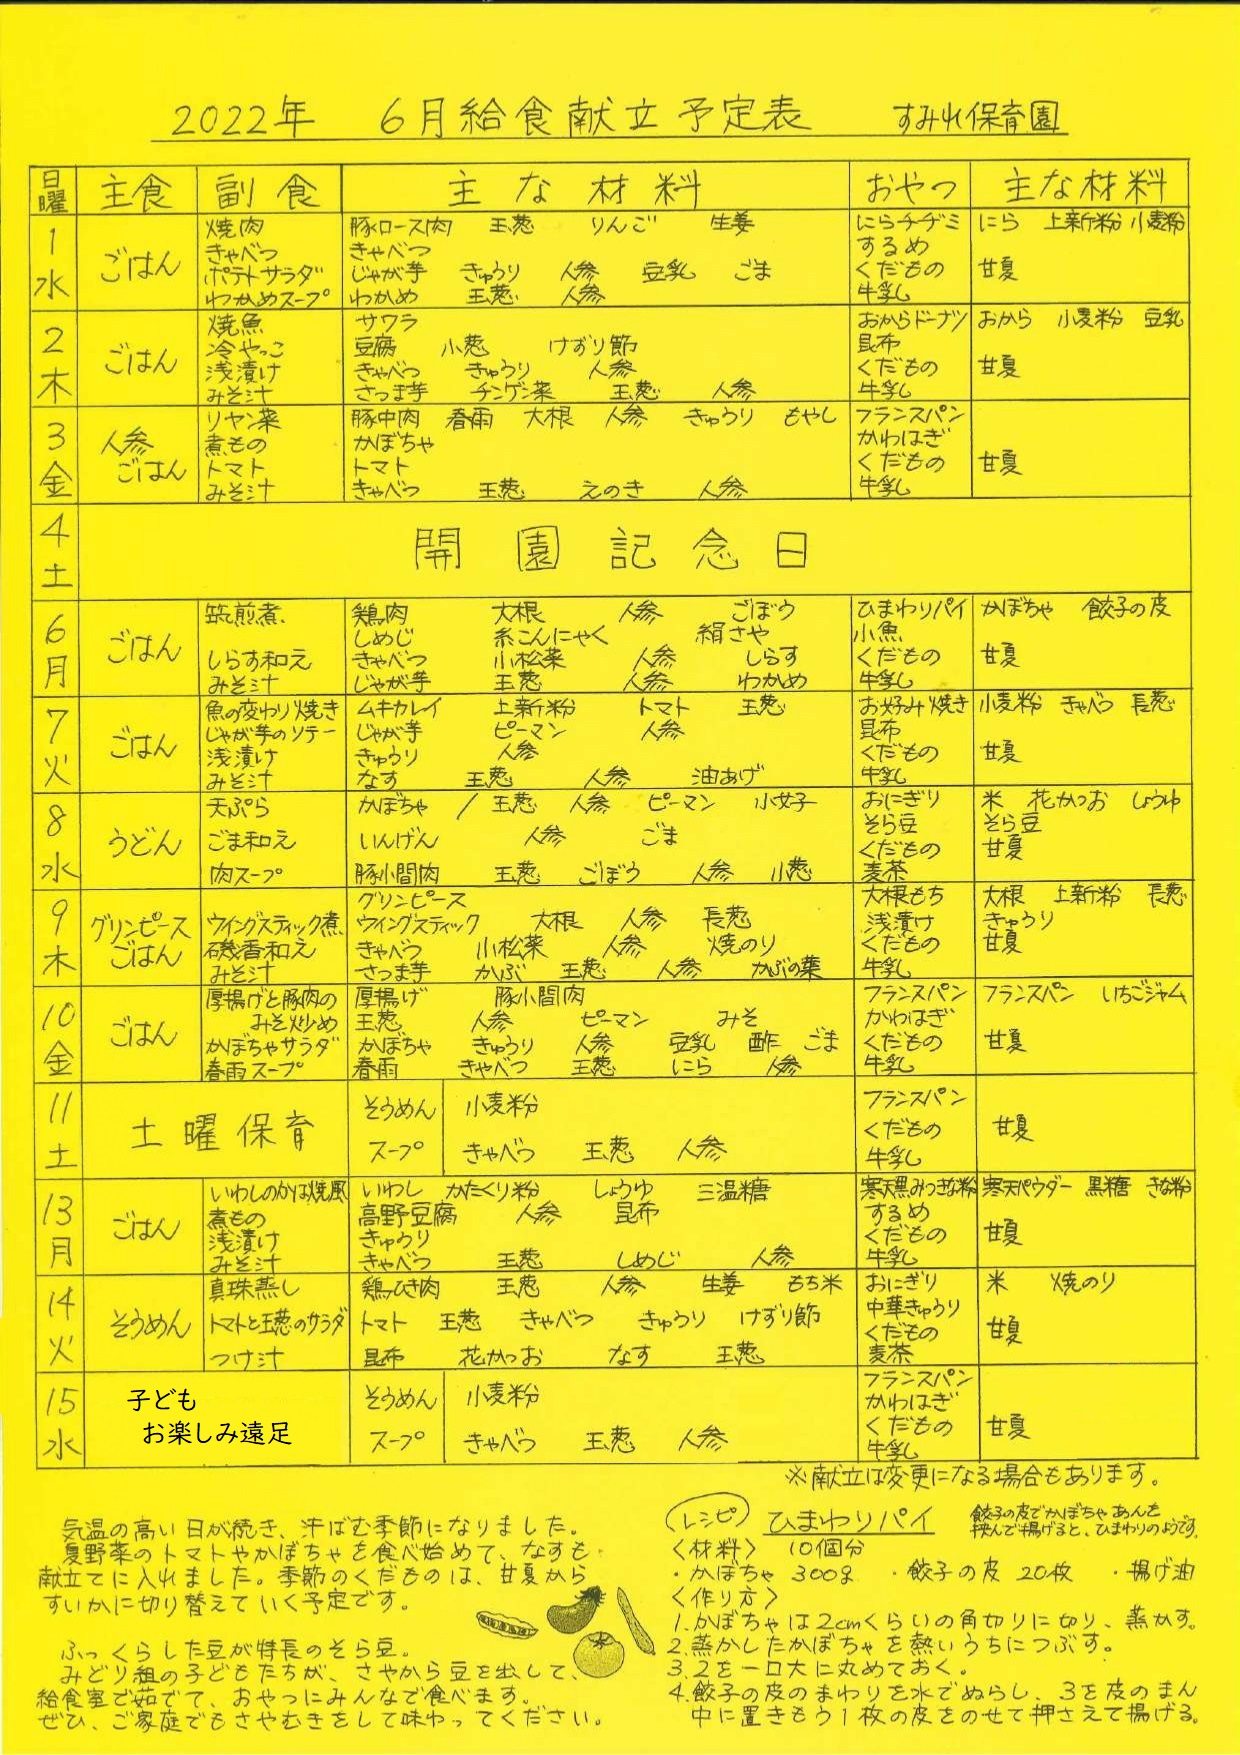 2022年 6月給食献立予定表 すみれ保育園
日曜 主食 副食 主な材料 おやつ 主な材料
1 水 ごはん
焼肉 豚ロース肉 玉葱 りんご 生姜 にらチヂミ にら 上新粉 小麦粉
きゃべつ きゃべつ するめ
ポテトサラダ じゃが芋 きゅうり 人参 豆乳 ごま くだもの 甘夏
わかめスープ わかめ 玉葱 人参 牛乳
2 木 ごはん
焼魚 サワラ おからドーナツ おから 小麦粉 豆乳
冷やっこ 豆腐 小葱 けずり節 昆布
浅漬け きゃべつ きゅうり 人参 くだもの 甘夏
みそ汁 さつま芋 チンゲン菜 玉葱 人参 牛乳
3 金 人参ごはん
リャン菜 豚中肉 春雨 大根 人参 きゅうり もやし フランスパン
煮もの かぼちゃ かわはぎ
トマト トマト くだもの 甘夏
みそ汁 きゃべつ 玉葱 えのき 人参 牛乳
4 土 開園記念日
6 月 ごはん
筑前煮 鶏肉 大根 人参 ごぼう ひまわりパイ かぼちゃ 餃子の皮
しめじ 糸こんにゃく 絹さや 小魚
しらす和え きゃべつ 小松菜 人参 しらす くだもの 甘夏
みそ汁 じゃが芋 玉葱 人参 わかめ 牛乳
7 火 ごはん
魚の変わり焼き ムキカレイ 上新粉 トマト 玉葱 お好み焼き 小麦粉 きゃべつ 長葱
じゃが芋のソテー じゃが芋 ピーマン 人参 昆布
浅漬け きゅうり 人参 くだもの 甘夏
みそ汁 なす 玉葱 人参 油あげ 牛乳
8 水 うどん
天ぷら かぼちゃ / 玉葱 人参 ピーマン 小女子 おにぎり 米 花かつお しょうゆ
そら豆 そら豆
ごま和え いんげん 人参 ごま くだもの 甘夏
肉スープ 豚小間肉 玉葱 ごぼう 人参 小葱 麦茶
9 木 グリンピースごはん
グリンピース 大根もち 大根 上新粉 長葱
ウイングスティック煮 ウイングスティック 大根 人参 長葱 浅漬け きゅうり
磯香和え きゃべつ 小松菜 人参 焼のり くだもの 甘夏
みそ汁 さつま芋 かぶ 玉葱 人参 かぶの葉 牛乳
10 金 ごはん
厚揚げと豚肉の 厚揚げ 豚小間肉 フランスパン フランスパン いちごジャム
みそ炒め 玉葱 人参 ピーマン みそ かわはぎ
かぼちゃサラダ かぼちゃ きゅうり 人参 豆乳 酢 ごま くだもの 甘夏
春雨スープ 春雨 きゃべつ 玉葱 にら 人参 牛乳
11 土 土曜保育
そうめん 小麦粉 フランスパン
くだもの 甘夏
スープ きゃべつ 玉葱 人参 牛乳
13 月 ごはん
いわしのかば焼風 いわし かたくり粉 しょうゆ 三温糖 寒天黒みつきな粉 寒天パウダー 黒糖 きな粉
煮もの 高野豆腐 人参 昆布 するめ
浅漬け きゅうり くだもの 甘夏
みそ汁 きゃべつ 玉葱 しめじ 人参 牛乳
14 火 そうめん
真珠蒸し 鶏ひき肉 玉葱 人参 生姜 もち米 おにぎり 米 焼のり
中華きゅうり
トマトと玉葱のサラダ トマト 玉葱 きゃべつ きゅうり けずり節 くだもの 甘夏
つけ汁 昆布 花かつお なす 玉葱 麦茶
15 水 子ども
お楽しみ遠足
そうめん 小麦粉 フランスパン
かわはぎ
くだもの 甘夏
スープ きゃべつ 玉葱 人参 牛乳
※献立は変更になる場合もあります。
気温の高い日が続き、汗ばむ季節になりました。
夏野菜のトマトやかぼちゃを食べ始めて、なすも
献立てに入れました。季節のくだものは、甘夏から
すいかに切り替えていく予定です。
ふっくらした豆が特長のそら豆。
みどり組の子どもたちが、さやから豆を出して、
給食室で茹でて、おやつにみんなで食べます。
ぜひ、ご家庭でもさやむきをして味わってください。
レシピ ひまわりパイ
餃子の皮でかぼちゃあんを
挟んで揚げると、ひまわりのようです。
〈材料〉 10個分
・かぼちゃ 300g ・餃子の皮 20枚 ・揚げ油
〈作り方〉
1.かぼちゃは2cmくらいの角切りに切り、蒸かす。
2.蒸かしたかぼちゃを熱いうちにつぶす。
3.2を一口大に丸めておく。
4.餃子の皮のまわりを水でぬらし、3を皮のまん
中に置きもう1枚の皮をのせて押さえて揚げる。